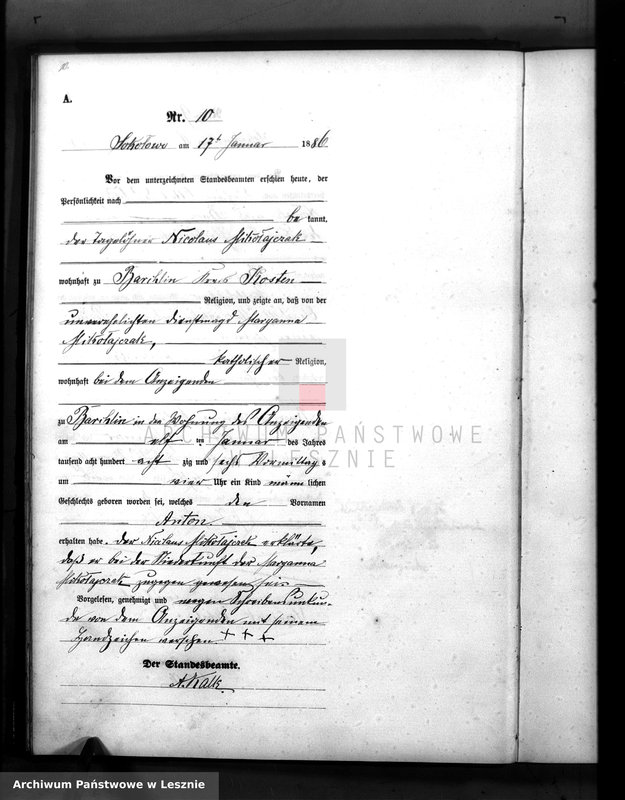 10.
A.
Nr. 10
Sokołowo am 17t Januar 1886
Vor dem unterzeichneten Standesbeamten erschien heute, der
Persönlichkeit nach
be kannt,
der Tagelöhner Nicolaus Mikołajczak
wohnhaft zu Barchlin Kreis Kosten
Religion, und zeigte an, daß von der
unverehelichten Dienstmagd Maryanna
Mikołajczak,
katholischer Religion,
wohnhaft bei dem Anzeigenden
zu Barchlin in der Wohnung des Anzeigenden
am elf ten Januar des Jahres
tausend acht hundert acht zig und sechs Vormittags
um vier Uhr ein Kind männ lichen
Geschlechts geboren worden sei, welches den Vornamen
Anton.
erhalten habe. Der Nicolaus Mikołajczak erklärte,
daß er bei der Niederkunft der Maryanna
Mikołajczak zugegen gewesen sei.
Vorgelesen, genehmigt und wegen Schreibensunkun-
de von dem Anzeigenden mit seinem
Handzeichen versehen + + +
Der Standesbeamte.
A. Kalk.
ARCHIWUM PAŃSTWOWE
W LESZNIE
Archiwum Państwowe w Lesznie